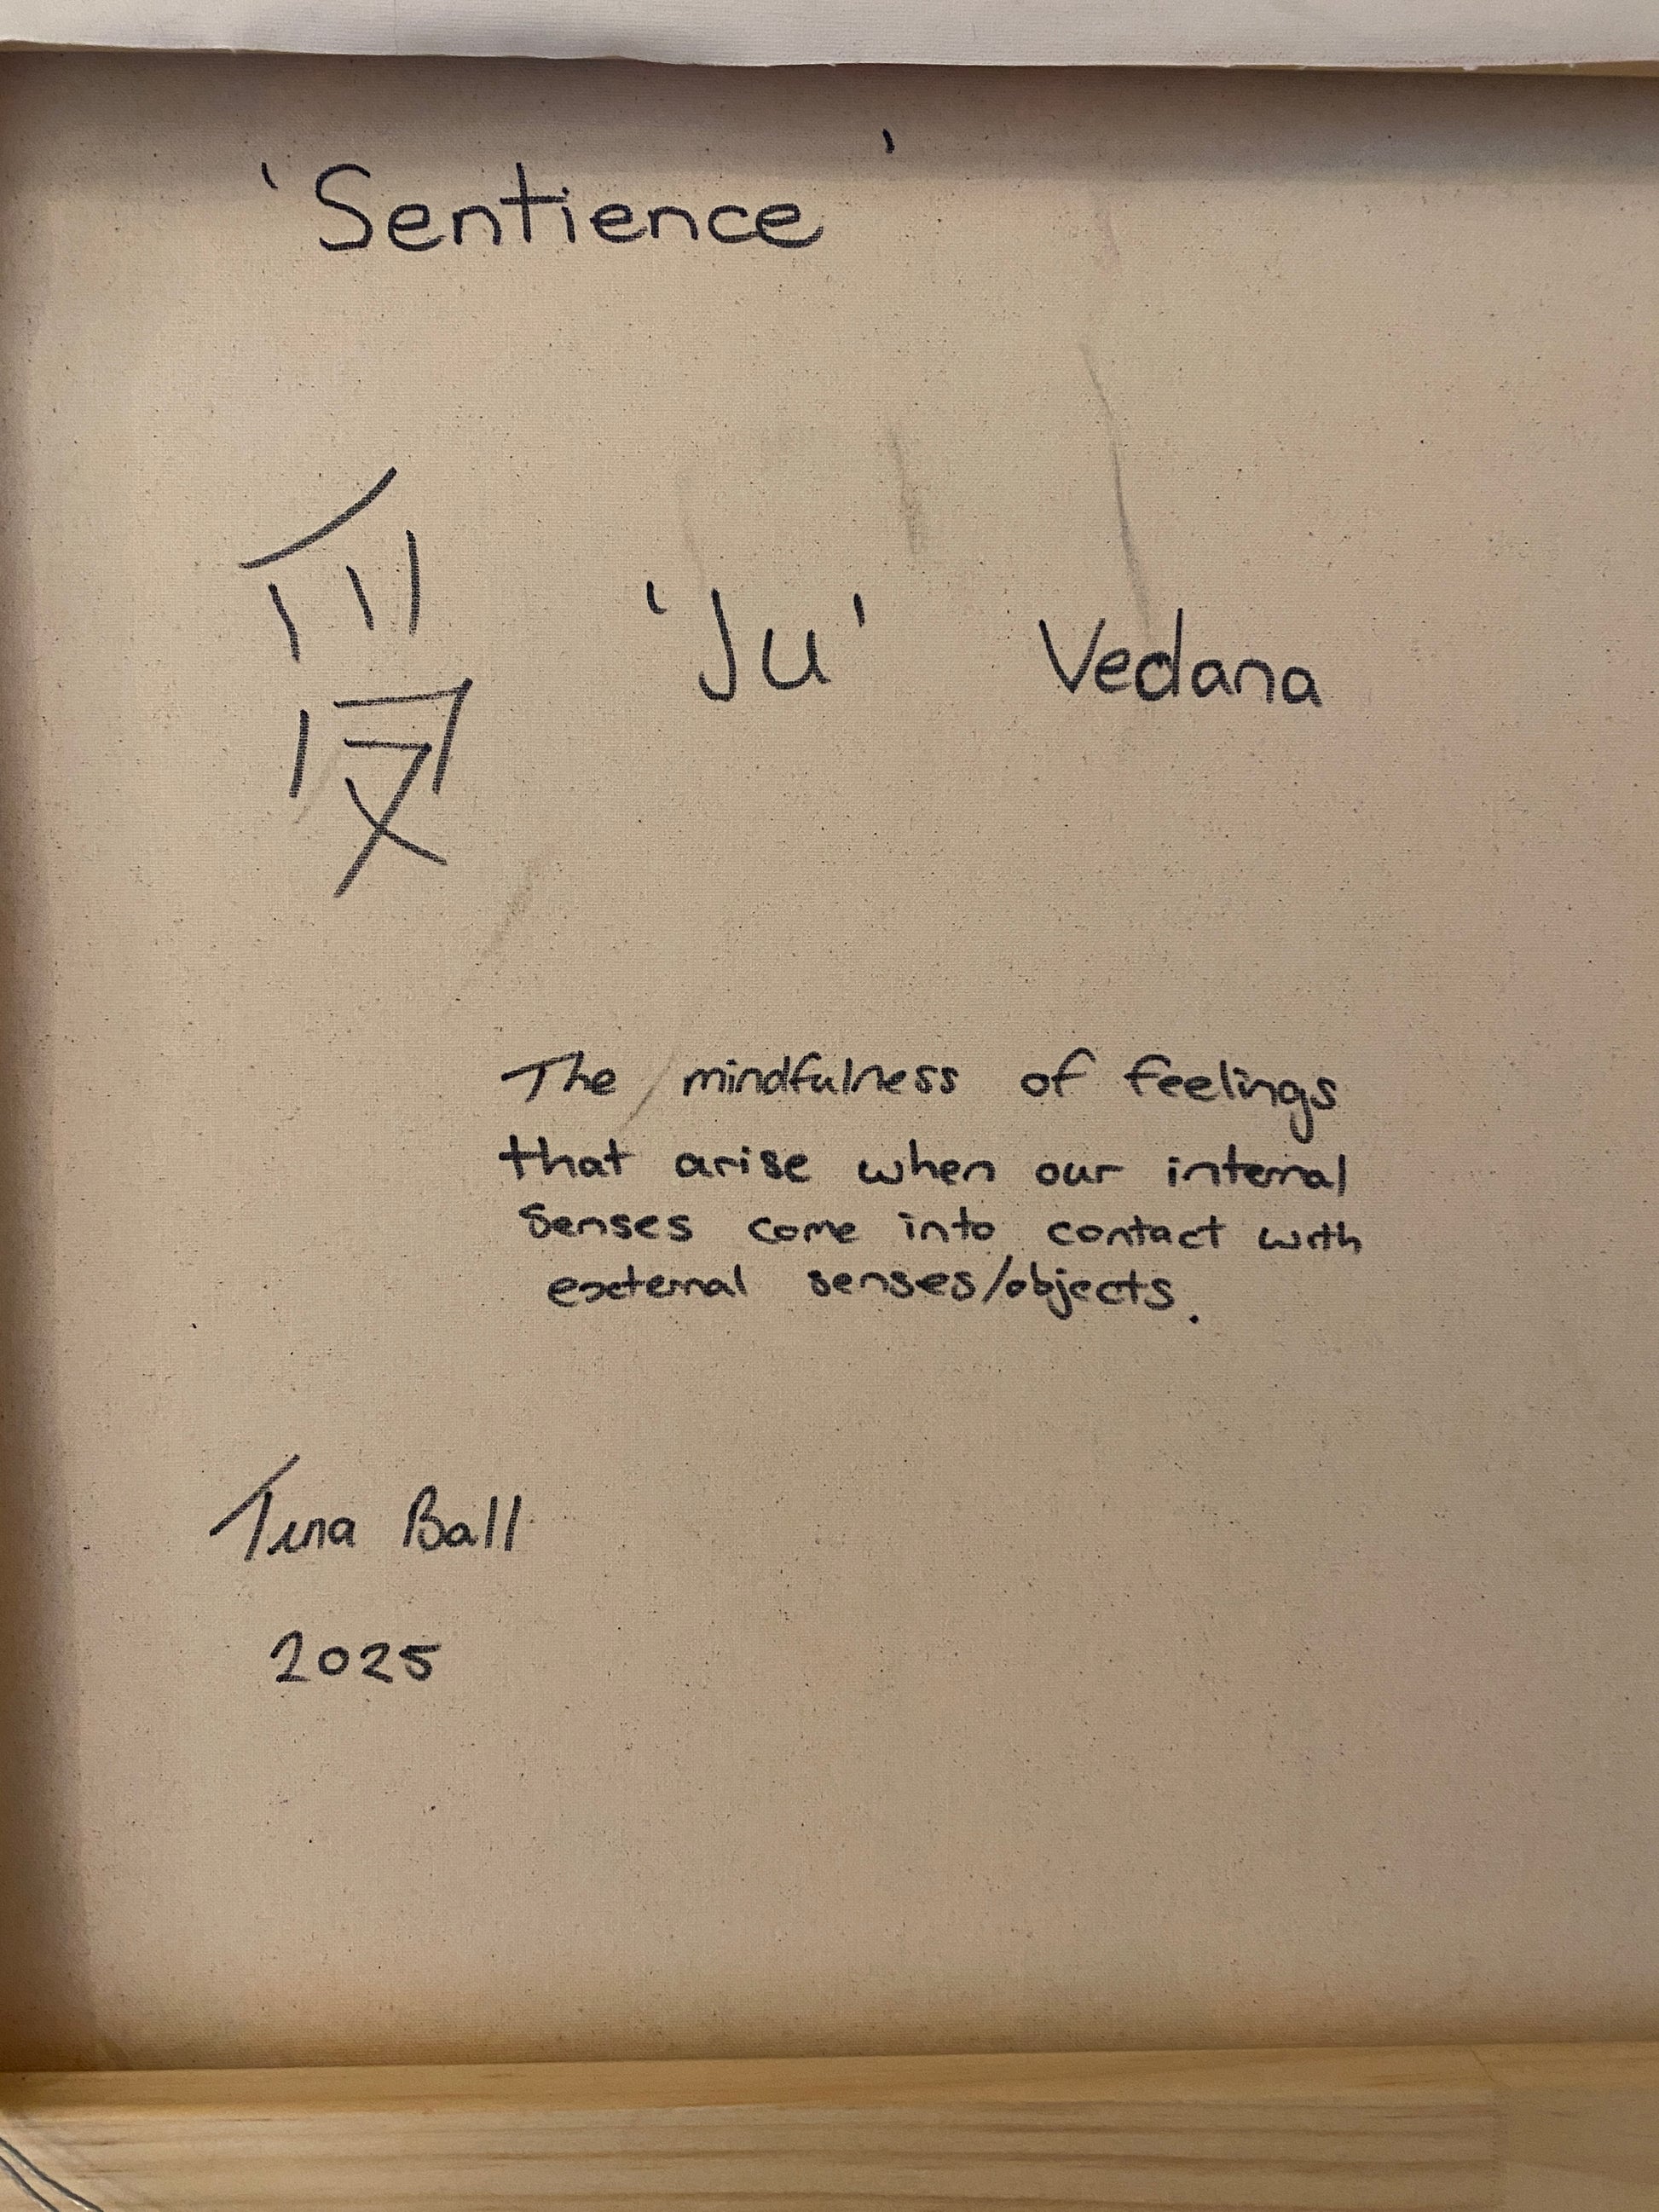 'Sentience'
受 'Ju' Vedana
The mindfulness of feelings
that arise when our internal
senses come into contact with
external senses/objects.
Tina Ball
2025